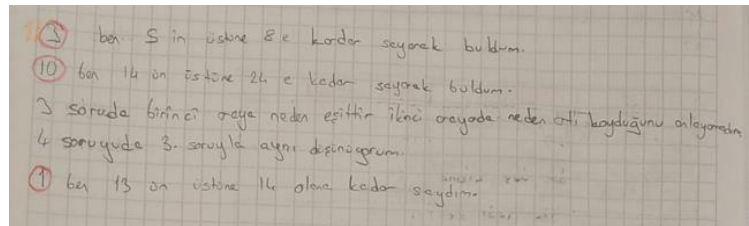 3 ben 5 in üstüne 8 e kadar sayarak buldum.
10 ben 14 ün üstüne 24 e kadar sayarak buldum.
3 soruda birinci araya neden eşittir ikinci arayada neden artı koyduğunu anlayamadım
4 soruyuda 3. soruyla aynı düşünüyorum.
1 ben 13 ün üstüne 14 olana kadar saydım.